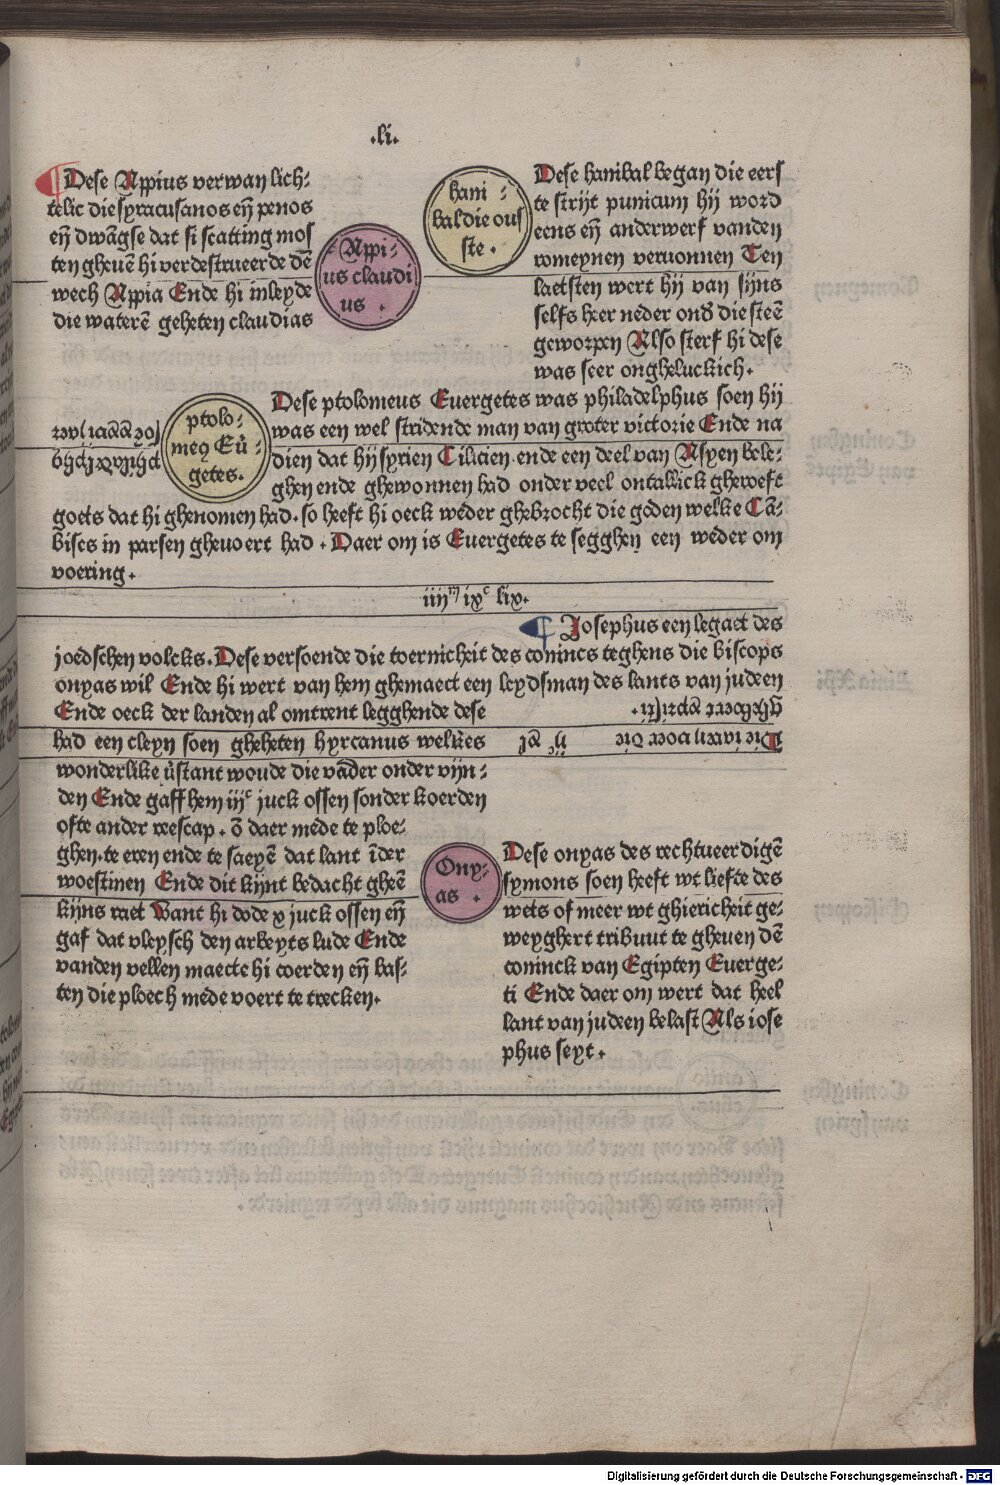 .li.
Dese Appius verwan lich-
telic die syracusanos eñ penos
eñ dwāgse dat si scatting mos
ten gheuē hi verdestrueerde dē
wech Appia Ende hi inleyde
die waterē geheten claudias
Appi-
us claudi
us .
hani -
bal die ouf
ste .
Dese hanibal began die eers
te strijt punicum hij word
eens eñ anderwerf vanden
romeynen verwonnen Ten
laetsten wert hij van sijns
selfs heer neder onď die steē
geworpen Also sterf hi dese
was seer ongheluckich.
ptolo-
meꝰ Eů-
getes.
Dese ptolomeus Euergetes was philadelphus soen hij
was een wel stridende man van groter victorie Ende na
dien dat hij syrien Cilicien ende een deel van Asyen bele-
ghen ende ghewonnen had onder veel ontallick gherooft
goets dat hi ghenomen had. so heeft hi oeck weder ghebrocht die goden welke Cā-
bises in parsen gheuoert had . Daer om is Euergetes te segghen een weder om
voering.
iiijᵐ ixᶜ lix.
Josephus een legaet des
joedschen volcks. Dese versoende die toernicheit des conincs teghens die biscops
onyas wil Ende hi wert van hem ghemaect een leydsman des lants van judeen
Ende oeck der landen al omtrent legghende dese
had een cleyn soen gheheten hyrcanus welkes
wonderlike ůstant woude die vāder onder vijn-
den Ende gaff hem iijᶜ juck ossen sonder koerden
ofte ander reescap . ō daer mede te ploe-
ghen. te eren ende te sayē dat lant īder
woestinen Ende dit kijnt bedacht gheē
kijns raet Want hi dode x juck ossen eñ
gaf dat vleysch den arbeyts lude Ende
vanden vellen maecte hi coerden eñ bas-
ten die ploech mede voert te trecken.
Ony-
as .
Dese onyas des rechtueerdigē
symons soen heeft wt liefte des
wets of meer wt ghiericheit ge-
weyghert tribuut te gheuen dē
coninck van Egipten Euerge-
ti Ende daer om wert dat heel
lant van judeen belast Als iose
phus seyt .
Digitalisierung gefördert durch die Deutsche Forschungsgemeinschaft - DFG